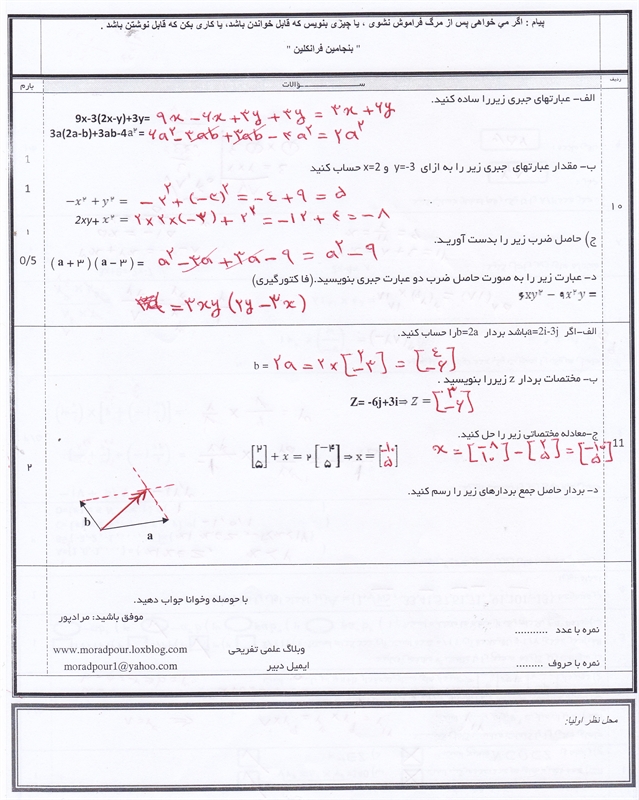 پیام : اگر می خواهی پس از مرگ فراموش نشوی ، یا چیزی بنویس که قابل خواندن باشد، یا کاری بکن که قابل نوشتن باشد .
" بنجامین فرانکلین "
ردیف ســـؤالات بارم
الف- عبارتهای جبری زیررا ساده کنید.
9x-3(2x-y)+3y= ۹x - ۶x + ۳y + ۳y = ۳x + ۶y
3a(2a-b)+3ab-4a² = ۶a² - ۳ab + ۳ab - ۴a² = ۲a²
1
ب- مقدار عبارتهای جبری زیر را به ازای y=-3 و x=2 حساب کنید
1
۱۰
−x² + y² = -۲² + (-۳)² = -۴ + ۹ = ۵
2xy+ x² = ۲×۲×(-۳) + ۲² = -۱۲ + ۴ = -۸
۱
ج) حاصل ضرب زیر را بدست آورید.
0/5
(a + ۳)(a − ۳) = a² - ۳a + ۳a - ۹ = a² - ۹
د- عبارت زیر را به صورت حاصل ضرب دو عبارت جبری بنویسید.(فا کتورگیری)
۶xy² − ۹x²y =
= ۳xy (۲y - ۳x)
الف-اگر a=2i-3jباشد بردار b=2aرا حساب کنید.
b = ۲a = ۲ × [۲ -۳] = [۴ -۶]
ب- مختصات بردار z زیررا بنویسید .
Z= -6j+3i⇒ Z = [۳ -۶]
ج-معادله مختصاتی زیر را حل کنید.
11
[۲ ۵] + x = ۲ [-۴ ۵] ⇒ x = [-۱۰ ۵]
x = [-۸ ۱۰] - [۲ ۵] = [-۱۰ ۵]
۲
د- بردار حاصل جمع بردارهای زیر را رسم کنید.
b
a
با حوصله وخوانا جواب دهید.
موفق باشید: مرادپور
نمره با عدد ...........
وبلاگ علمی تفریحی www.moradpour.loxblog.com
نمره با حروف ......... ایمیل دبیر moradpour1@yahoo.com
محل نظر اولیا: